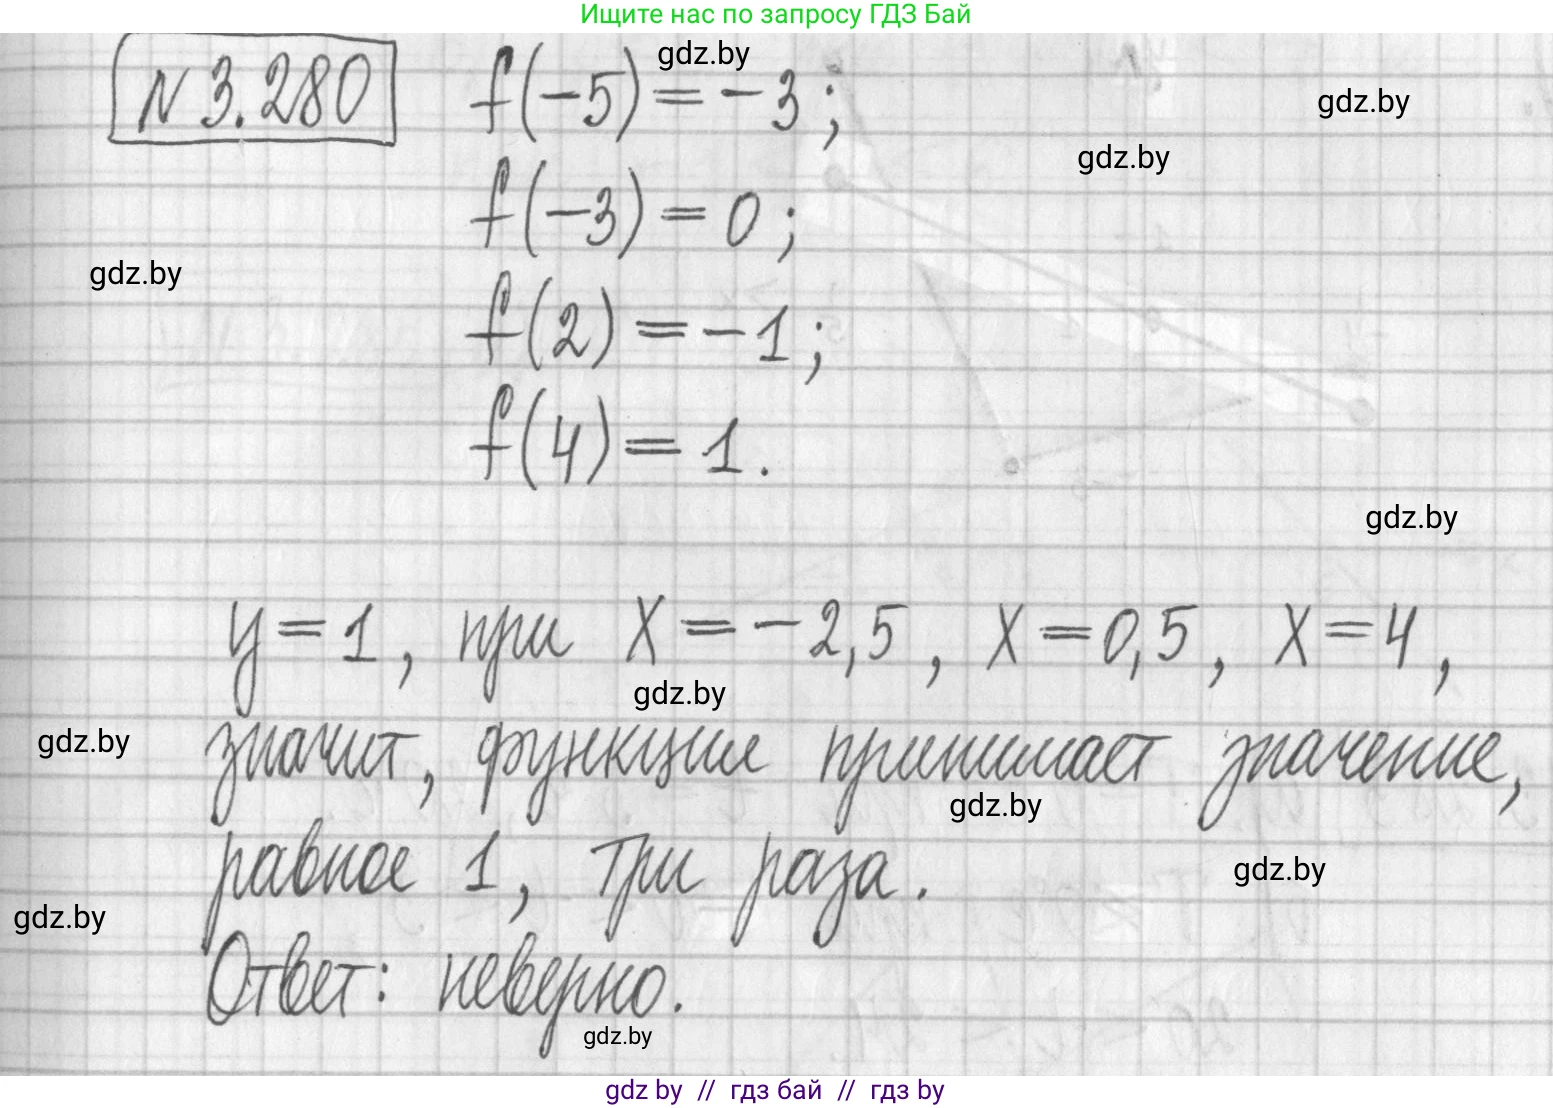 Ищите нас по запросу ГДЗ Бай
N 3.280 f(-5) = -3;
gdz.by
gdz.by
gdz.by
f(-3) = 0;
gdz.by
f(2) = -1;
f(4) = 1.
gdz.by
y = 1, при x = -2,5, x = 0,5, x = 4,
gdz.by
gdz.by
значит, функция принимает значение,
gdz.by
равное 1, три раза.
gdz.by
gdz.by
Ответ: неверно.
gdz.by
gdz by // гдз бай // гдз by